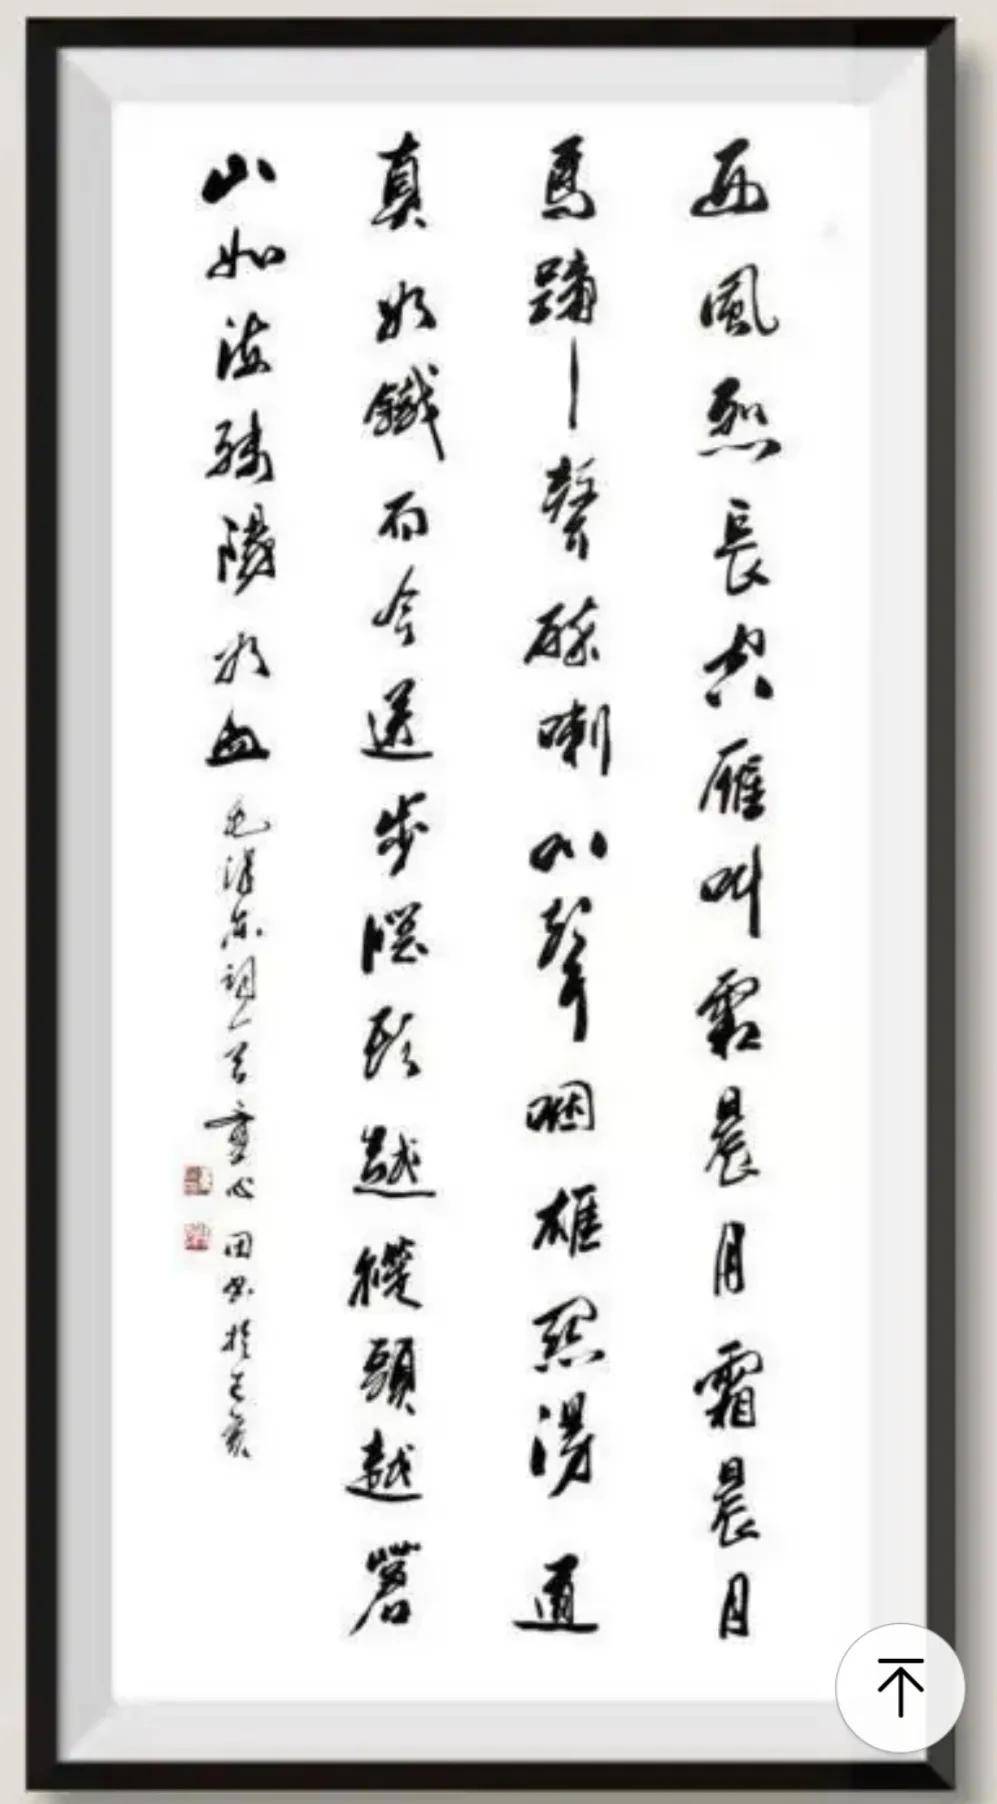 西風烈長空雁叫霜晨月霜晨月
馬蹄一聲碎喇叭聲咽雄關漫道
真如鐵而今邁步從頭越從頭越蒼
山如海殘陽如血 毛澤東詞一首童心田書於己亥